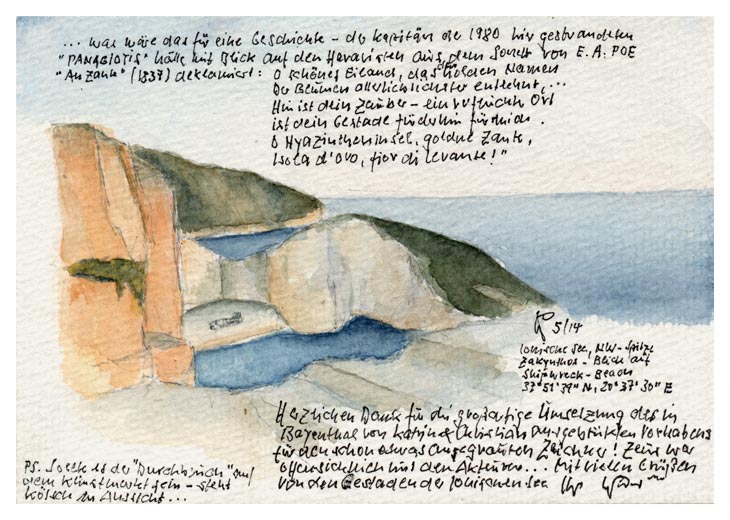 ... was wäre das für eine Geschichte – der Kapitän der 1980 hier gestrandeten
"PANAGIOTIS" hätte mit Blick auf den Havaristen aus dem Sonett von E. A. POE
"An Zante" (1837) deklamiert: O schönes Eiland, das den holden Namen
Der Blumen allerlieblichster entlehnt, ...
Hin ist dein Zauber – ein verfluchter Ort
ist dein Gestade fürderhin für mich.
O Hyazintheninsel, goldne Zante,
Isola d'oro, fior di levante!"
5/14
Ionische See, NW-Spitze
Zakynthos - Blick auf
Shipwreck-Beach
37°51'39" N, 20°37'30" E
Herzlichen Dank für die großartige Umsetzung des in
Bayenthal von Katrin & Christian ausgebrüteten Vorhabens
für den schon etwas angegrauten Zeichner! Zeus war
offensichtlich mit den Akteuren... Mit vielen Grüßen
von den Gestaden der Ionischen See
PS. Sollte es der "Durchbruch" auf
dem Kunstmarkt sein – steht
Kölsch in Aussicht...